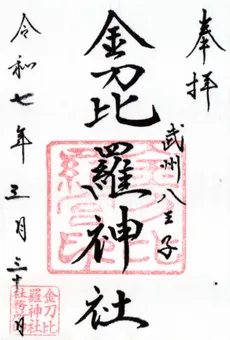 奉拝
武州八王子
金刀比羅神社
令和七年三月三十日
金刀比
羅神社
社務所印